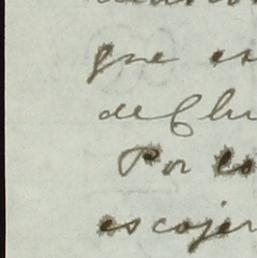 que es
de Chu
Por lo
escojer